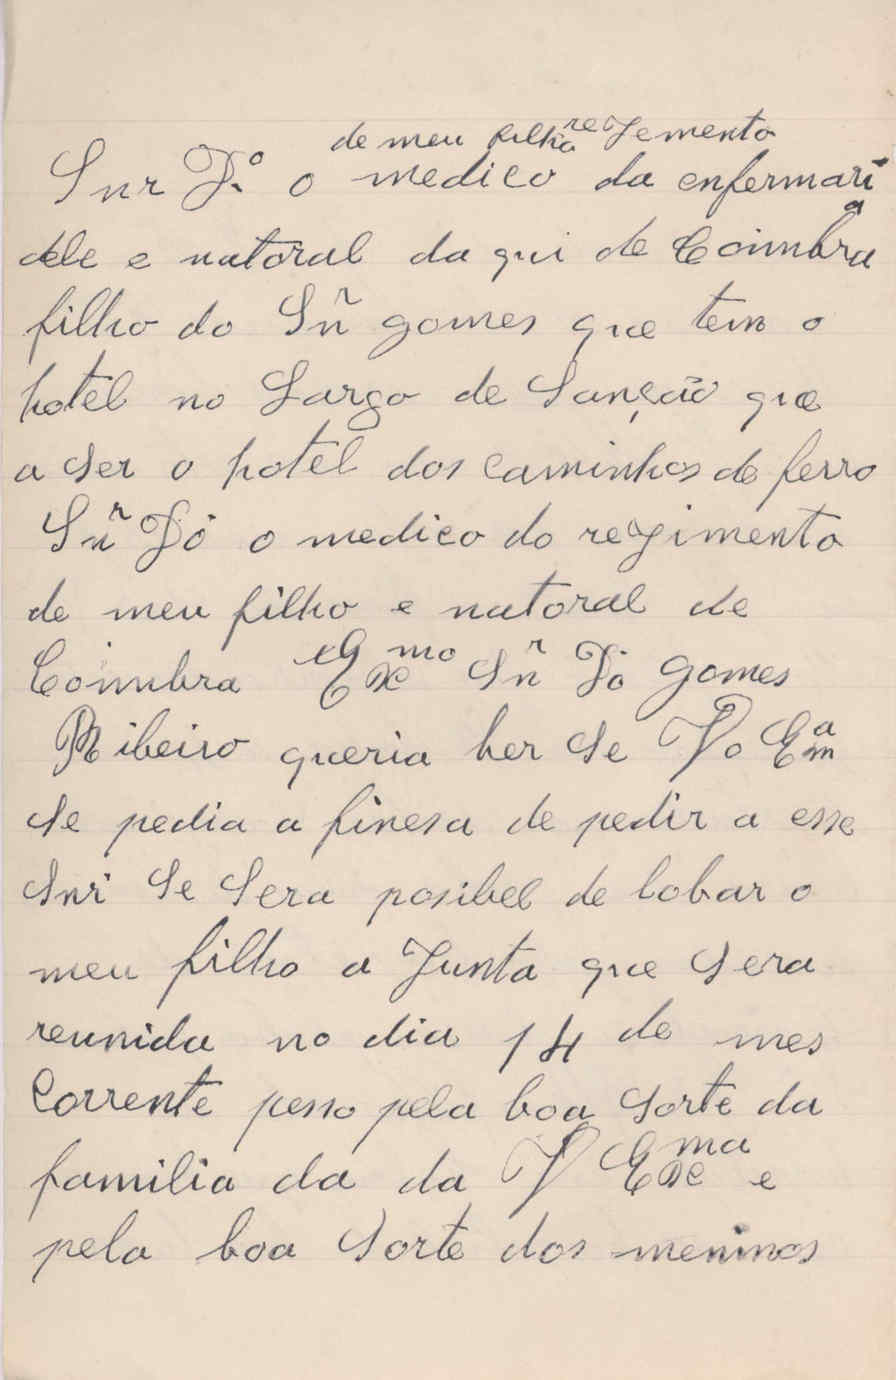 de meu filho regemento
Snr Dº o medico da enfermaria
dele e natoral da qui de Coimbra
filho do Snr gomes que tem o
hotel no Largo de Sanção que
a ser o hotel dos caminhos de ferro
Snr Dº o medico do regimento
de meu filho e natoral de
Coimbra Exmo Snr Dº Gomes
Ribeiro queria ber se Vo Ema
se pedia a finesa de pedir a esse
Snr Se Sera posibel de lobar o
meu filho a Junta que Sera
reunida no dia 14 de mes
Corrente pesso pela boa Sorte da
familia da da V Exma e
pela boa Sorte dos meninos